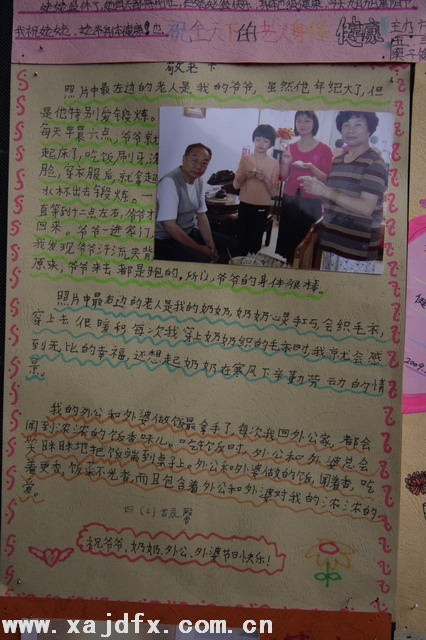 祝全天下的老人身体健康
敬老卡
照片中最左边的老人是我的爷爷，虽然他年纪大了，但
是他特别爱锻炼。
每天早晨六点，爷爷就
起床了，吃饭刷牙，洗
脸，穿衣服后，就拿起
水杯出去锻炼。一
直等到十二点左右，爷爷才
回来。爷爷一进家门，
我发现爷爷汗流夹背
原来，爷爷来去都是跑的，所以，爷爷的身体很棒。
照片中最右边的老人是我的奶奶，奶奶心灵手巧，会织毛衣，
穿上去很暖和，每次我穿上奶奶织的毛衣时，我就会感
到无比的幸福，还想起奶奶在寒风下辛勤劳动的情
景。
我的外公和外婆做饭最拿手了，每次我回外公家，都会
闻到浓浓的饭香味儿。吃饭时，外公和外婆总会
笑眯眯地把饭端到桌子上。外公和外婆做的饭，闻着香，吃
着更香，饭菜不光香，而且包含着外公和外婆对我的浓浓的
爱。
祝爷爷、奶奶、外公、外婆节日快乐！
www.xajdfx.com.cn